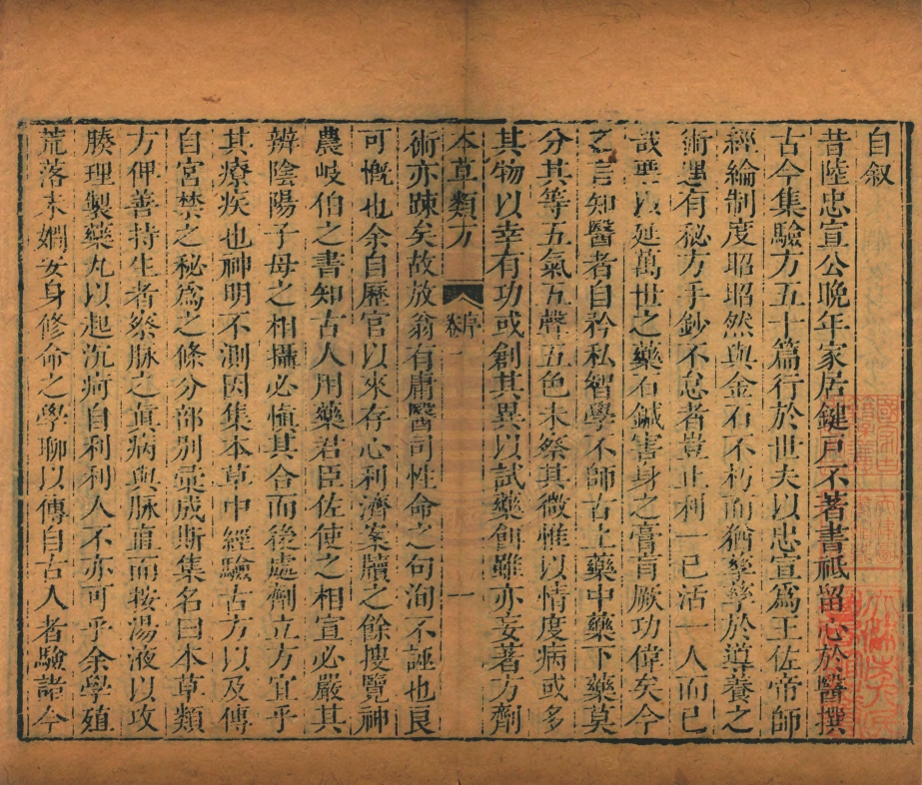 自叙
昔陸忠宣公晚年家居鍵戸不著書祗留心於醫撰
古今集驗方五十篇行於世夫以忠宣爲王佐帝師
經綸制度昭昭然與金石不朽而猶孳孳於導養之
術遇有秘方手鈔不怠者豈止利一已活一人而已
哉要以延萬世之藥石鍼害身之膏肓厥功偉矣今
之言知醫者自矜私智學不師古上藥中藥下藥莫
分其等五氣五聲五色未祭其微惟以情度病或多
其物以幸有功或創其異以試藥餌雖亦妄著方劑
本草類方
序
卷一
一
術亦踈矣故放翁有庸醫司性命之句洵不誣也良
可慨也余自歷官以來存心利濟案牘之餘搜覽神
農岐伯之書知古人用藥君臣佐使之相宣必嚴其
辨陰陽子母之相攝必愼其合而後處劑立方宜乎
其療疾也神明不測因集本草中經驗古方以及傳
自宮禁之秘爲之條分部别彙成斯集名曰本草類
方俾善持生者祭脉之眞病與脉直而按湯液以攻
腠理製藥丸以起沉疴自利利人不亦可乎余學殖
荒落未嫺安身修命之學聊以傳自古人者驗諸今